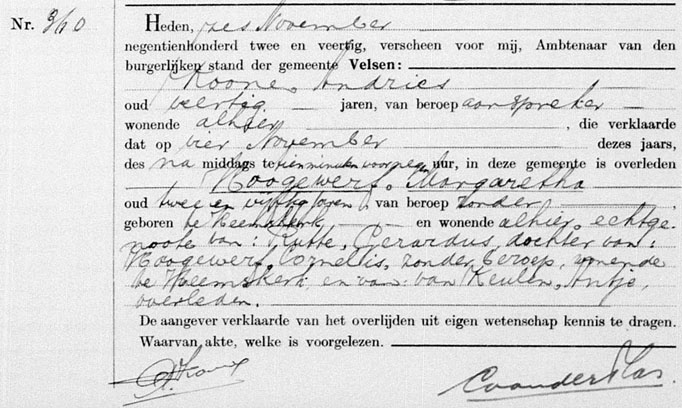 Nr. 360
Heden, zes November
negentienhonderd twee en veertig, verscheen voor mij, Ambtenaar van den
burgerlijken stand der gemeente Velsen:
Kroone, Andries
oud veertig jaren, van beroep aanspreker
wonende alhier, die verklaarde
dat op vier November dezes jaars,
des na middags te tien minuten voor negen ure, in deze gemeente is overleden
Hoogewerf, Margaretha
oud twee en vijftig jaren, van beroep zonder,
geboren te Heemskerk en wonende alhier, echtge-
noote van: Rutte, Gerardus, dochter van:
Hoogewerf, Cornelis, zonder beroep, wonende
te Heemskerk, en van: van Keulen, Antje,
overleden.
De aangever verklaarde van het overlijden uit eigen wetenschap kennis te dragen.
Waarvan akte, welke is voorgelezen.